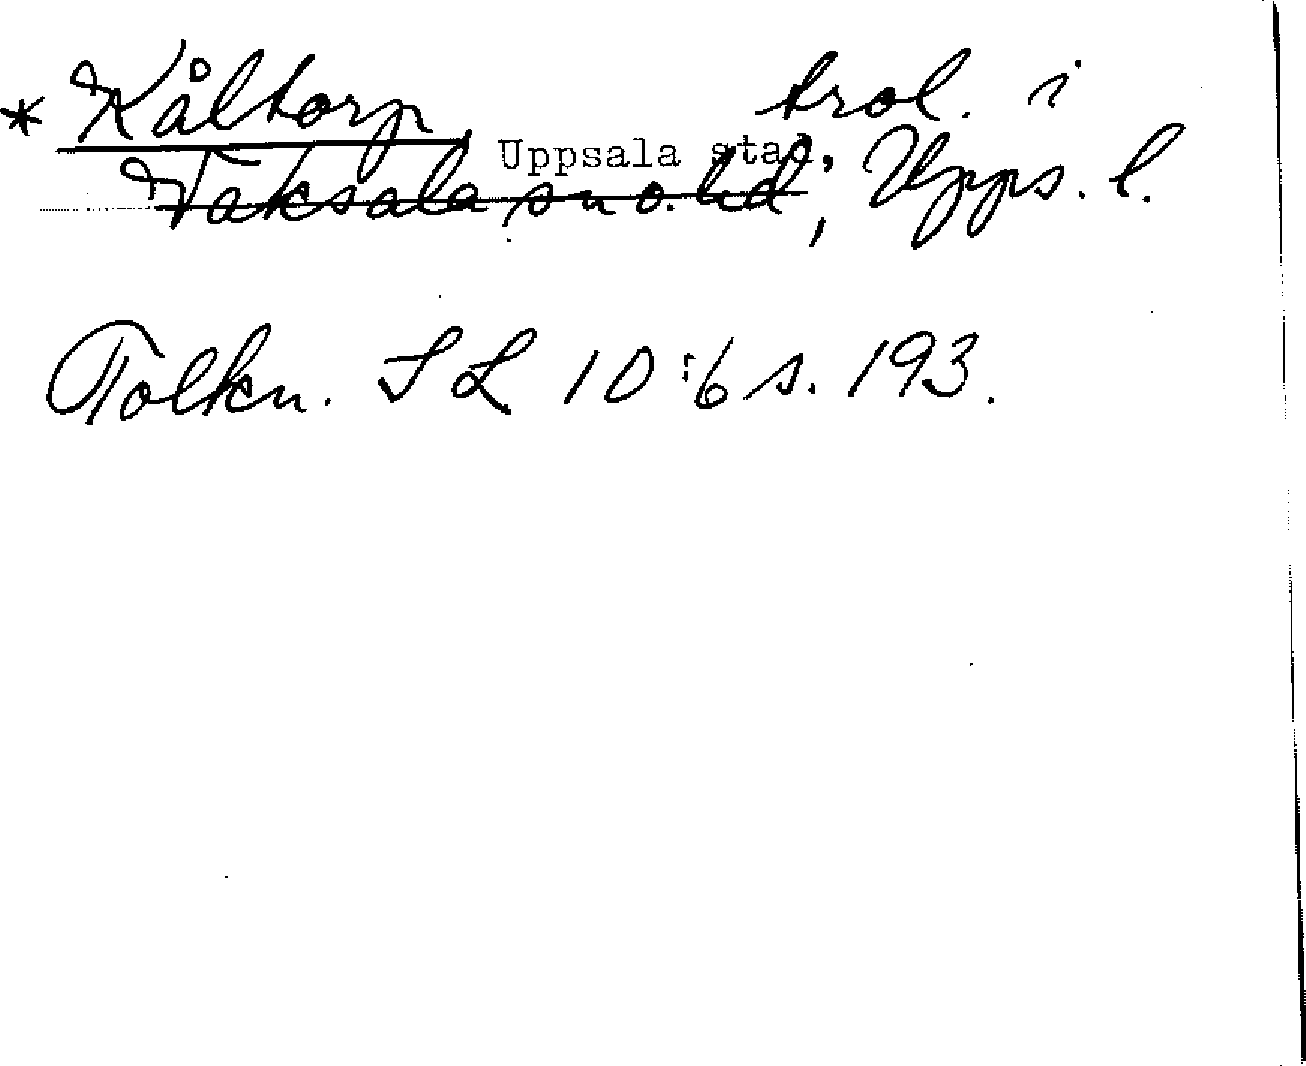 * Kåltorp, trol. i
Uppsala stad,
Vaksala sn o. hd, Upps. l.
Tolkn. SL 10:6 s. 193.